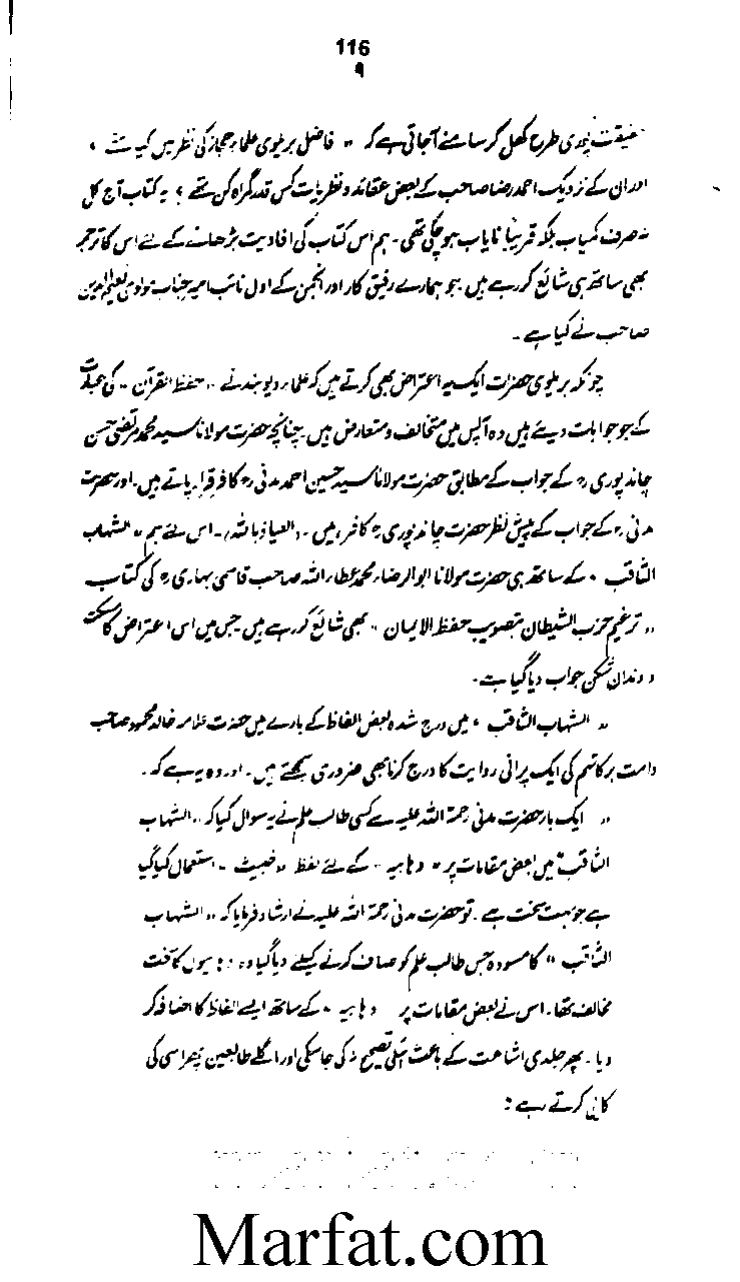 116
۹
حقیقت پوری طرح کھل کر سامنے آجاتی ہے کہ " فاضل بریلوی علماء حجاز کی نظر میں کیا تھے ،
اور ان کے نزدیک احمد رضا صاحب کے بعض عقائد و نظریات کس قدر گمراہ کن تھے ؟ یہ کتاب آج کل
نہ صرف کمیاب بلکہ قریباً نایاب ہو چکی تھی ۔ ہم اس کتاب کی افادیت بڑھانے کے لئے اس کا ترجمہ
بھی ساتھ ہی شائع کر رہے ہیں جو ہمارے رفیق کار اور انجمن کے اول نائب امیر جناب مولوی نعیم الدین
صاحب نے کیا ہے ۔
چونکہ بریلوی حضرات ایک یہ اعتراض بھی کرتے ہیں کہ علماء دیوبند نے "حفظ القرآن " کی عبارت
کے جو جوابات دیئے ہیں وہ آپس میں متخالف و متعارض ہیں ۔ چنانچہ حضرت مولانا سید محمد مرتضیٰ حسن
چاند پوری رح کے جواب کے مطابق حضرت مولانا سید حسین احمد مدنی رح کافر قرار پاتے ہیں ۔ اور حضرت
مدنی رح کے جواب کے پیش نظر حضرت چاند پوری رح کافر ہیں ۔ (العیاذ باللہ) ۔ اس لئے ہم " الشہاب
الثاقب " کے ساتھ ہی حضرت مولانا ابو الرضاء محمد عطاء اللہ صاحب قاسمی بہاری رح کی کتاب
" ترغیم حزب الشیطان بتصویب حفظ الایمان " بھی شائع کر رہے ہیں جس میں اس اعتراض کا مسکت
و دندان شکن جواب دیا گیا ہے ۔
" الشہاب الثاقب " میں درج شدہ بعض الفاظ کے بارے میں حضرت علامہ خالد محمود صاحب
دامت برکاتہم کی ایک پرانی روایت کا درج کرنا بھی ضروری سمجھتے ہیں ۔ اور وہ یہ ہے کہ ۔
" ایک بار حضرت مدنی رحمۃ اللہ علیہ سے کسی طالب علم نے یہ سوال کیا کہ " الشہاب
الثاقب " میں بعض مقامات پر " وہابیہ " کے لئے لفظ " خبیث " استعمال کیا گیا
ہے جو بہت سخت ہے ۔ تو حضرت مدنی رحمۃ اللہ علیہ نے ارشاد فرمایا کہ " الشہاب
الثاقب " کا مسودہ جس طالب علم کو صاف کرنے کیلئے دیا گیا وہ وہابیوں کا سخت
مخالف تھا ۔ اس نے بعض مقامات پر " وہابیہ " کے ساتھ ایسے الفاظ کا اضافہ کر
دیا ۔ پھر جلدی اشاعت کے باعث اسکی تصحیح نہ کی جاسکی اور اگلے طابعین پھر اسی کی
کاپی کرتے رہے :
Marfat.com